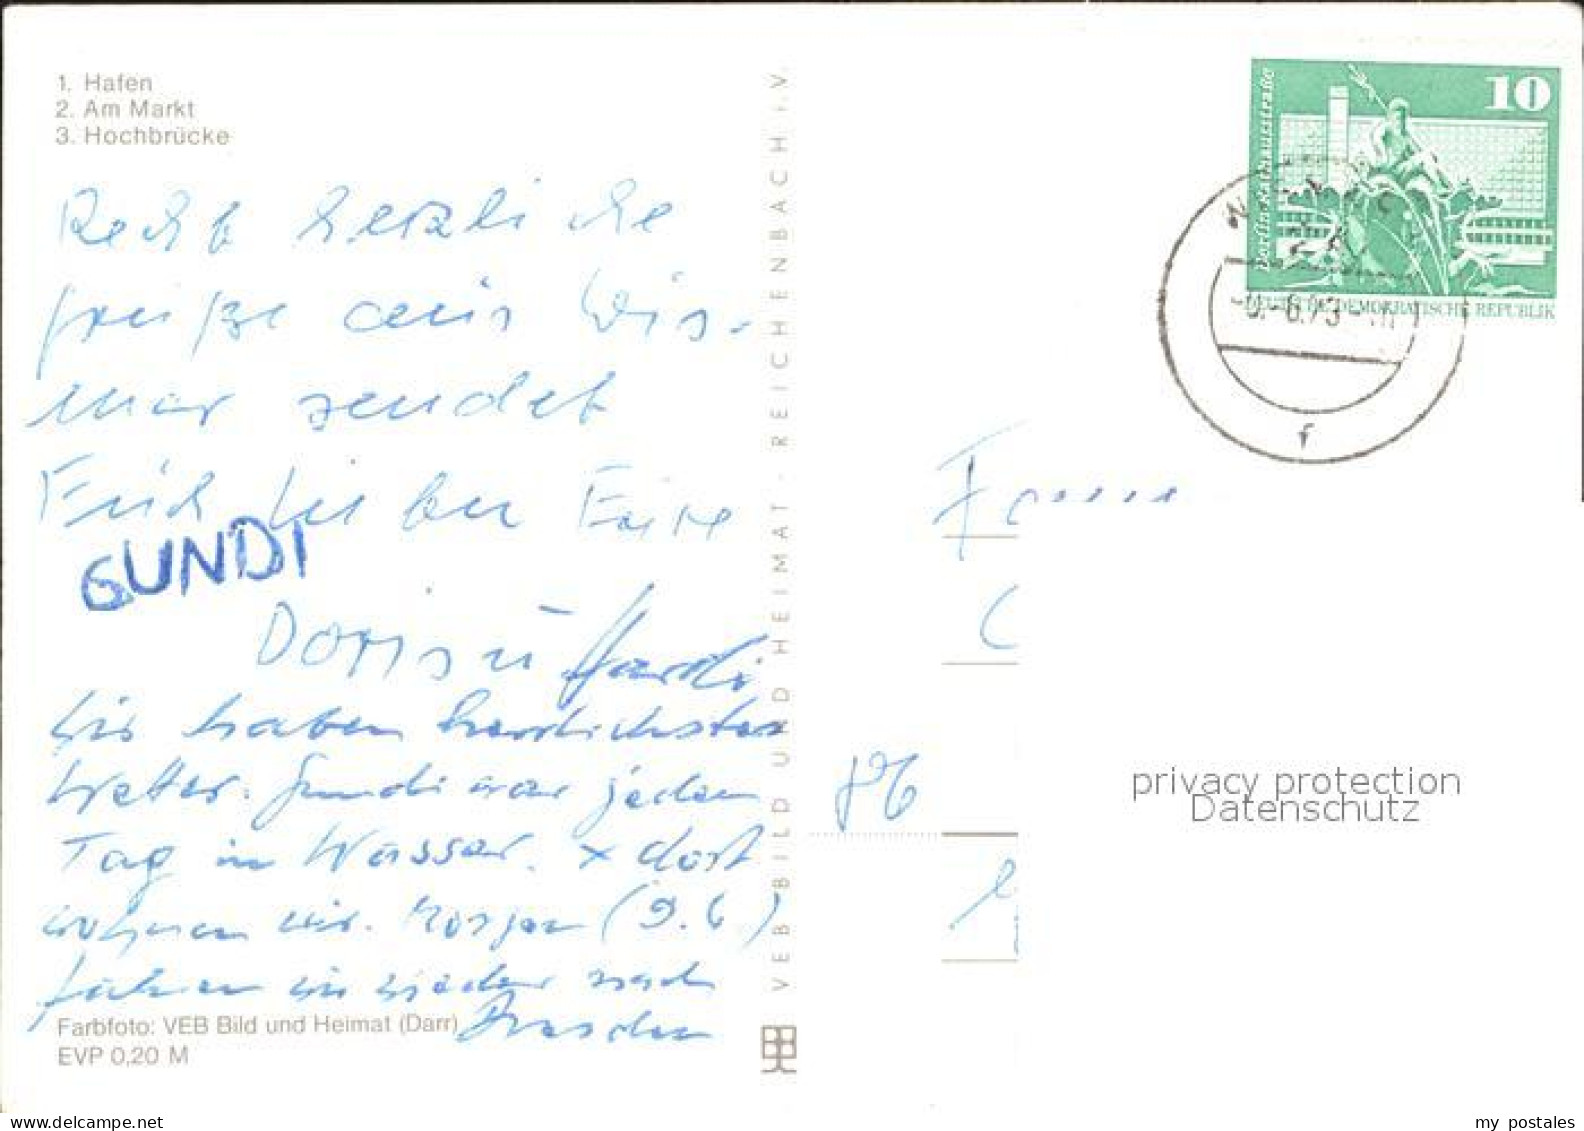 1. Hafen
2. Am Markt
3. Hochbrücke
Recht herzliche
grüße aus Wis-
mar sendet
Euch lieber
GUNDI
Doris u Hardi
Wir haben herrlichstes
Wetter. Gundi war jeden
Tag in Wasser. x dort
wohnen wir. Morgen (9.6)
fahren wir wieder nach
Dresden
Farbfoto: VEB Bild und Heimat (Darr)
EVP 0,20 M
VEB BILD UND HEIMAT · REICHENBACH i. V.
10
Berlin Rathausstraße
DEUTSCHE DEMOKRATISCHE REPUBLIK
f
privacy protection
Datenschutz
my postales
www.delcampe.net